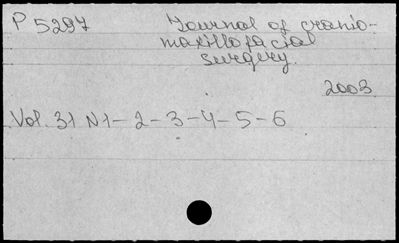 P 5297 Journal of cranio-
maxillofacial
surgery.
2003
Vol. 31 N1-2-3-4-5-6